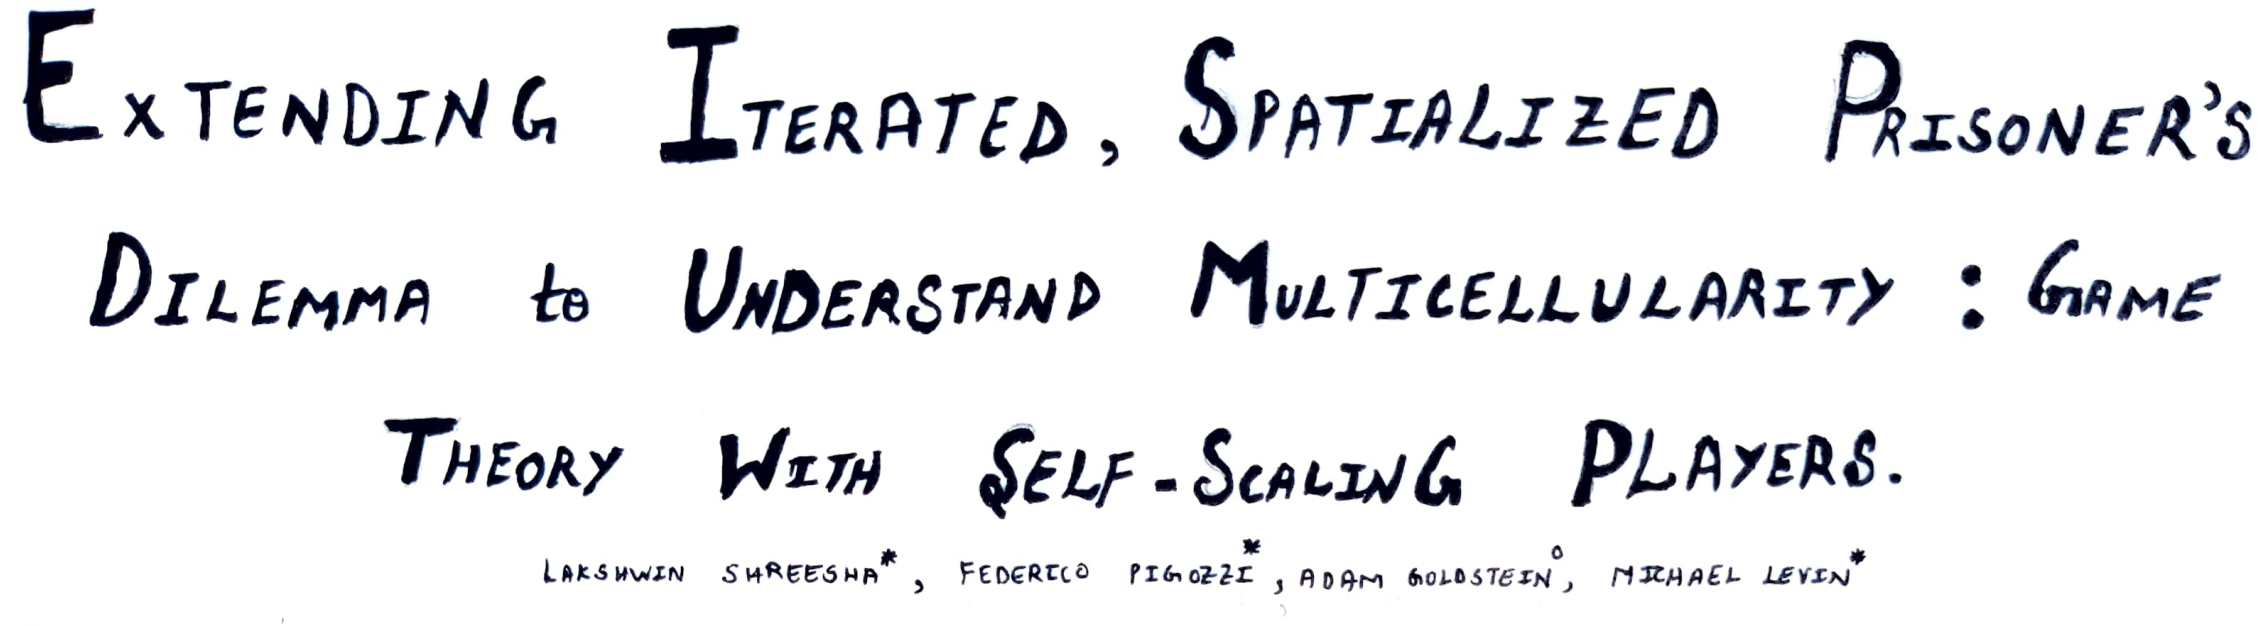 EXTENDING ITERATED, SPATIALIZED PRISONER'S
DILEMMA to UNDERSTAND MULTICELLULARITY : GAME
THEORY WITH SELF-SCALING PLAYERS.
LAKSHWIN SHREESHA*, FEDERICO PIGOZZI*, ADAM GOLDSTEIN°, MICHAEL LEVIN*